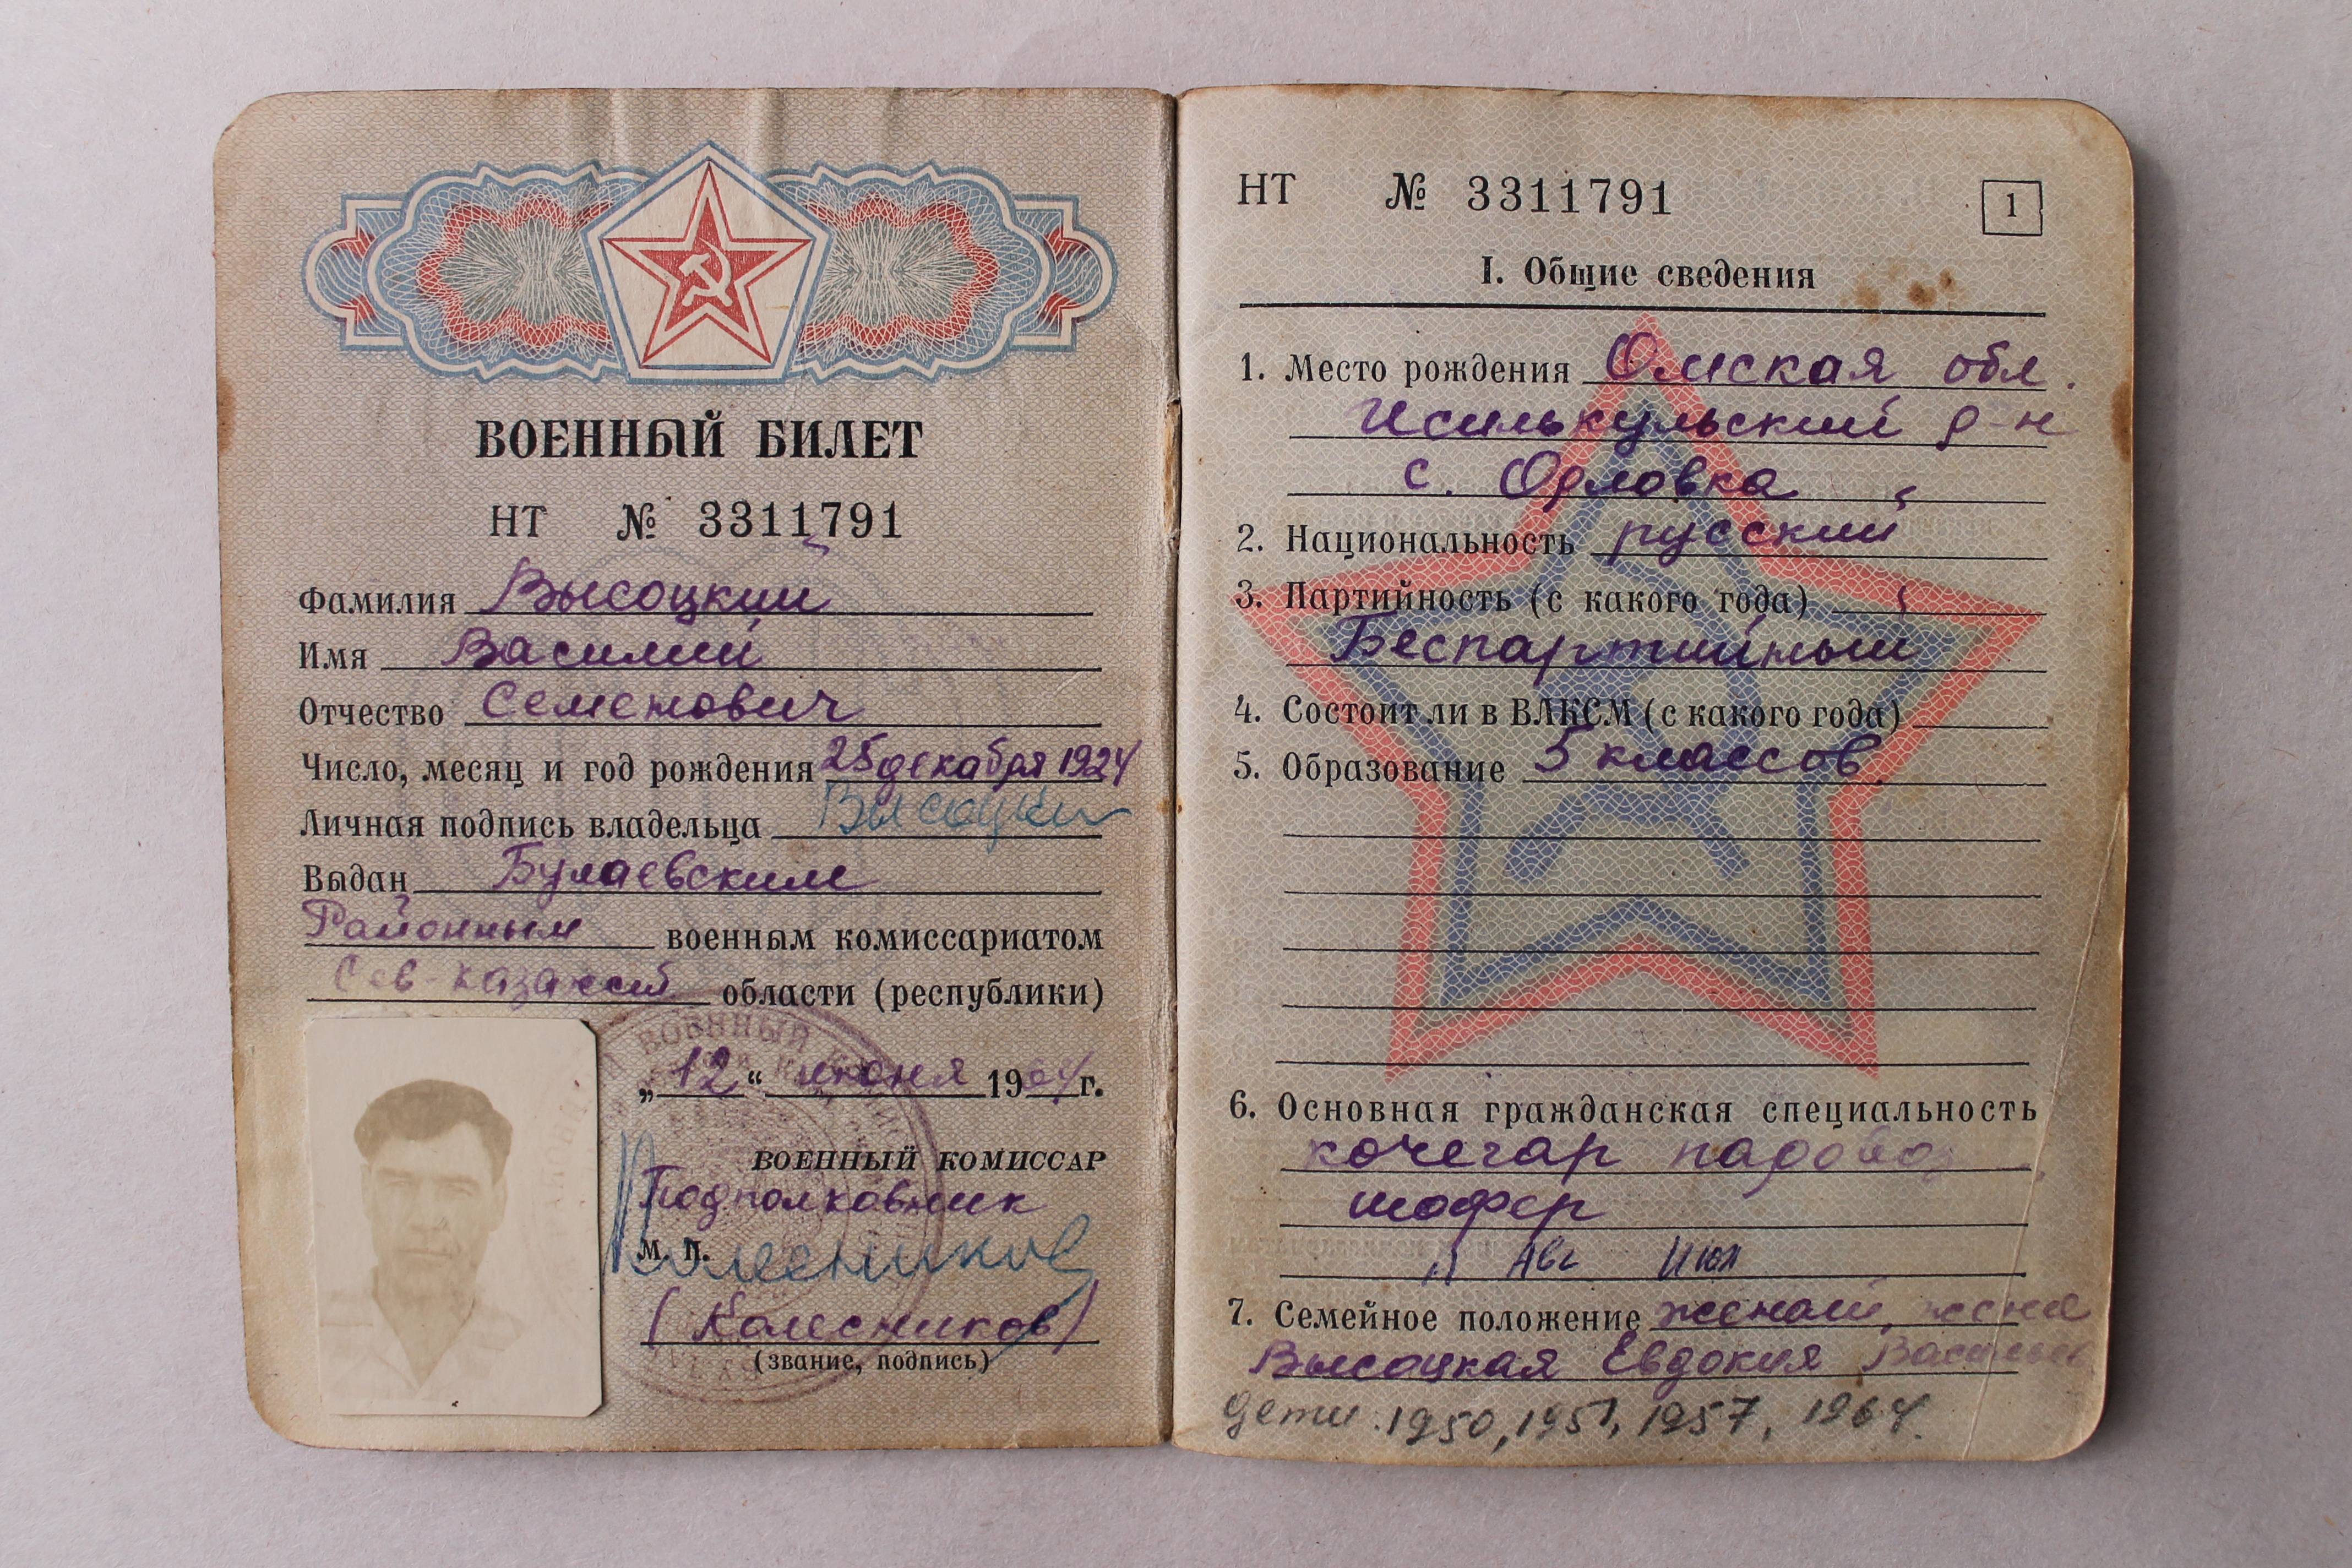 ВОЕННЫЙ БИЛЕТ
НТ № 3311791
Фамилия Высоцкий
Имя Василий
Отчество Семенович
Число, месяц и год рождения 25 декабря 1924
Личная подпись владельца Высоцкий
Выдан Булаевским
Районным военным комиссариатом
Сев-Казахской области (республики)
„12“ июня 1964 г.
ВОЕННЫЙ КОМИССАР
Подполковник
М. П. Колесников
(Колесников)
(звание, подпись)
НТ № 3311791
1
I. Общие сведения
1. Место рождения Омская обл.
Исилькульский р-н
с. Орловка
2. Национальность русский
3. Партийность (с какого года)
Беспартийный
4. Состоит ли в ВЛКСМ (с какого года)
5. Образование 5 классов
6. Основная гражданская специальность
кочегар
шофер
Авг Июл
7. Семейное положение женат, жена
Высоцкая Евдокия Васильев
дети. 1950, 1951, 1957, 1964.